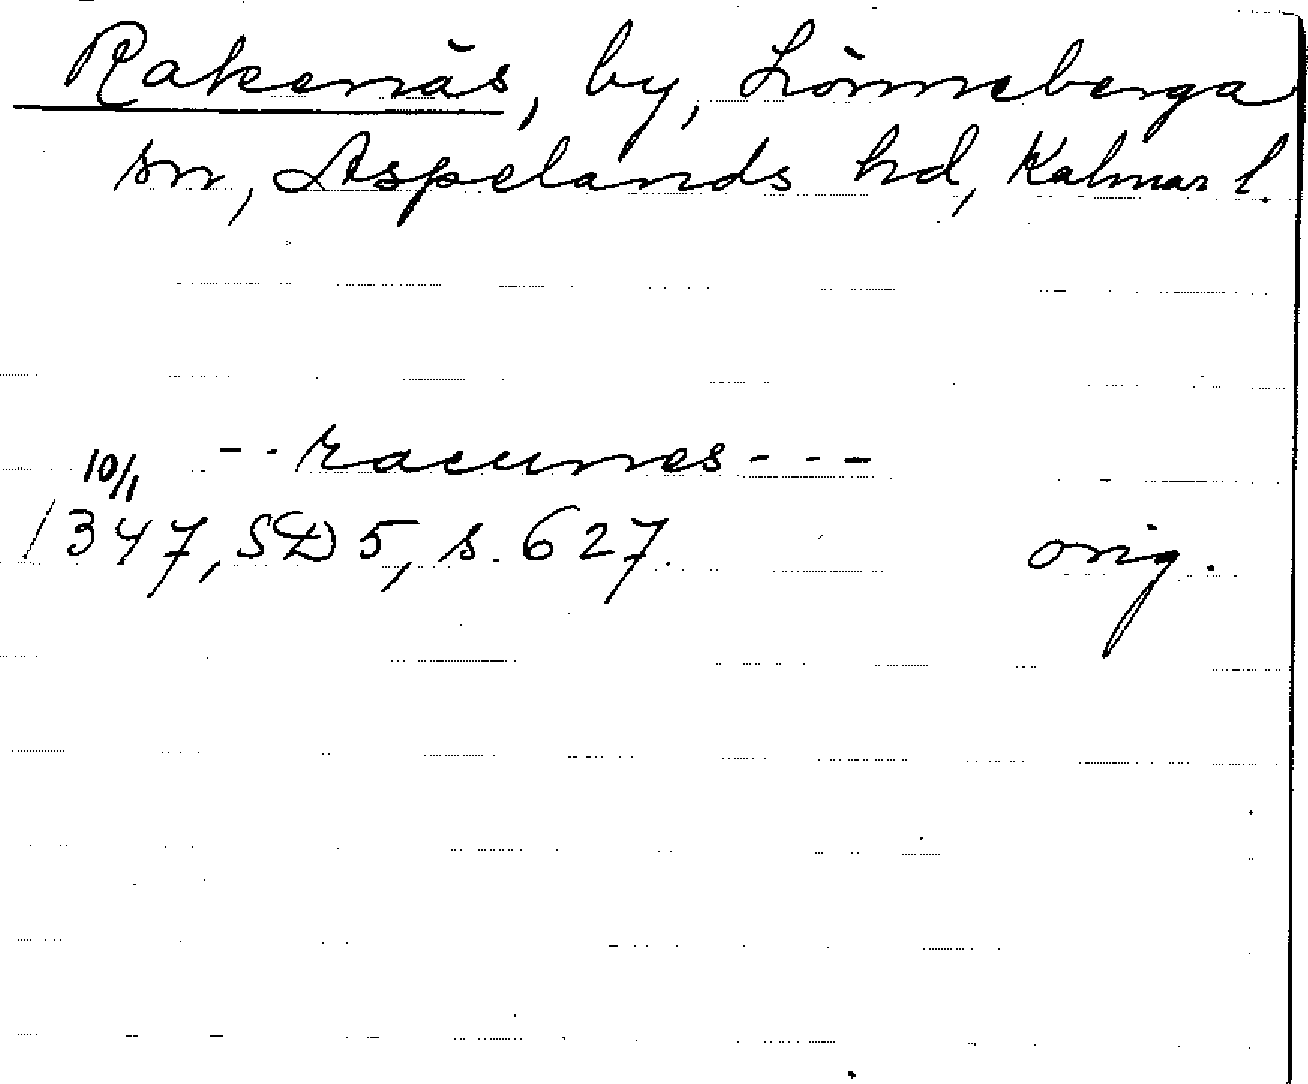 Rakenäs, by, Lönneberga
sn, Aspelands hd, Kalmar l.
-- racunnes ---
10/1
1347, SD 5, s. 627.
orig.